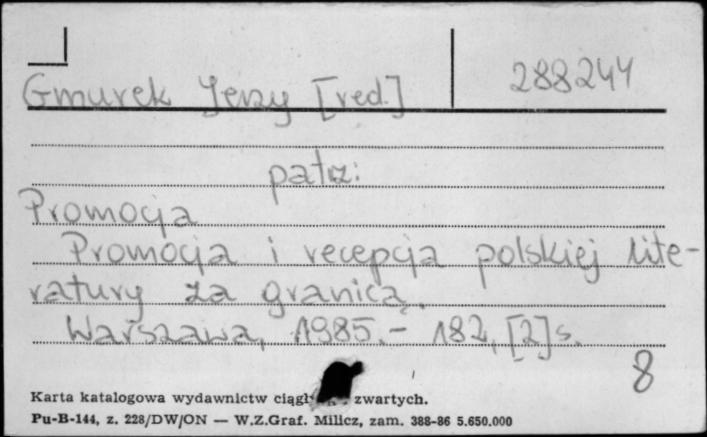 Gmurek Jerzy [red.]
288244
patrz:
Promocja
Promocja i recepcja polskiej lite-
ratury za granicą.
Warszawa, 1985.- 182, [2] s.
8
Karta katalogowa wydawnictw zwartych.
Pu-B-144, z. 228/DW/ON — W.Z.Graf. Milicz, zam. 388-86 5.650.000